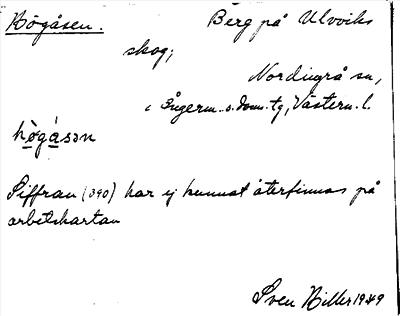 Högåsen. Berg på Ulvviks
skog;
Nordingrå sn,
i Ångerm. s. dom. tg, Västern. l.
hògásən
Siffran (390) har ej kunnat återfinnas på
arbetskartan
Sven Hiller 1949